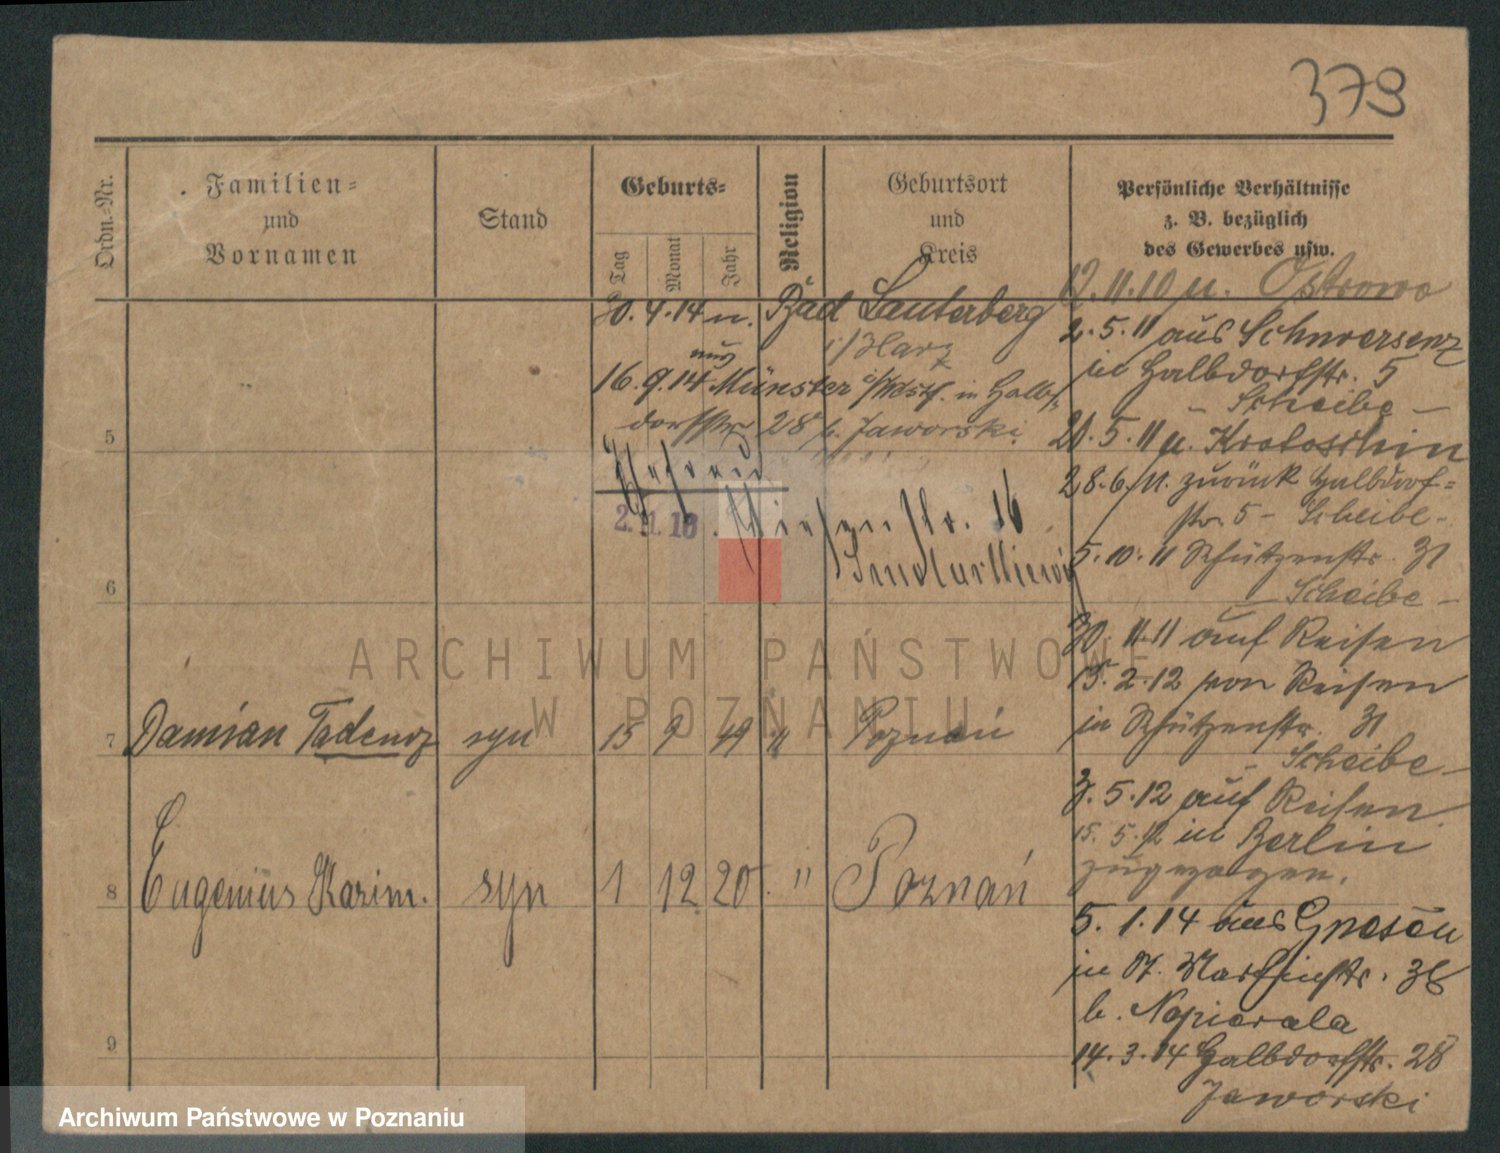 379
Ordn.=Nr.
Familien=
und
Vornamen
Stand
Geburts=
Tag
Monat
Jahr
Religion
Geburtsort
und
Kreis
Persönliche Verhältnisse
z. B. bezüglich
des Gewerbes usw.
20. 4. 14 n. Bad Lauterberg
i/Harz
16. 9. 14 aus Münster i/Wstf. in Halb
dorfstr 28 b. Jaworski
5
2. 11. 18
Wiesenstr. 16
6
ARCHIWUM PAŃSTWOWE
W POZNANIU
7 Damian Tadeusz syn 15 9 19 " Poznań
8 Eugenius Kazim. syn 1 12 20 " Poznań
9
12. 11. 10 n. Ostrowo
2. 5. 11 aus Schwersenz
in Halbdorfstr. 5
- Scheibe -
21. 5. 11 n. Krotoschin
28. 6. 11. zurück Halbdorf=
str. 5 - Scheibe -
5. 10. 11 Schützenstr. 31
- Scheibe -
30. 11. 11 auf Reisen
15. 2. 12 von Reisen
in Schützenstr. 31
- Scheibe -
3. 5. 12 auf Reisen
15. 5. 12 in Berlin
zugezogen.
5. 1. 14 aus Gnesen
in St. Martinstr. 36
b. Napierala
14. 3. 14 Halbdorfstr. 28
Jaworski
Archiwum Państwowe w Poznaniu